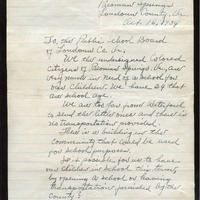 Paeonian Springs
Loudoun County, Va.
Oct. 16, 1934
To the Public School Board
of Loudoun Co. Va.
We the undersigned Colored
Citizens of Paeonian Springs, Va. are
very much in need of a school for
our children. We have 29 that
are school age.
We are too far from Waterford
to send the little ones and there is
no transportation provided.
There is a building in the
community that could be used
for school purposes.
Is it possible for us to have
our children in school this term
by opening a school or having
transportation provided by the
County?